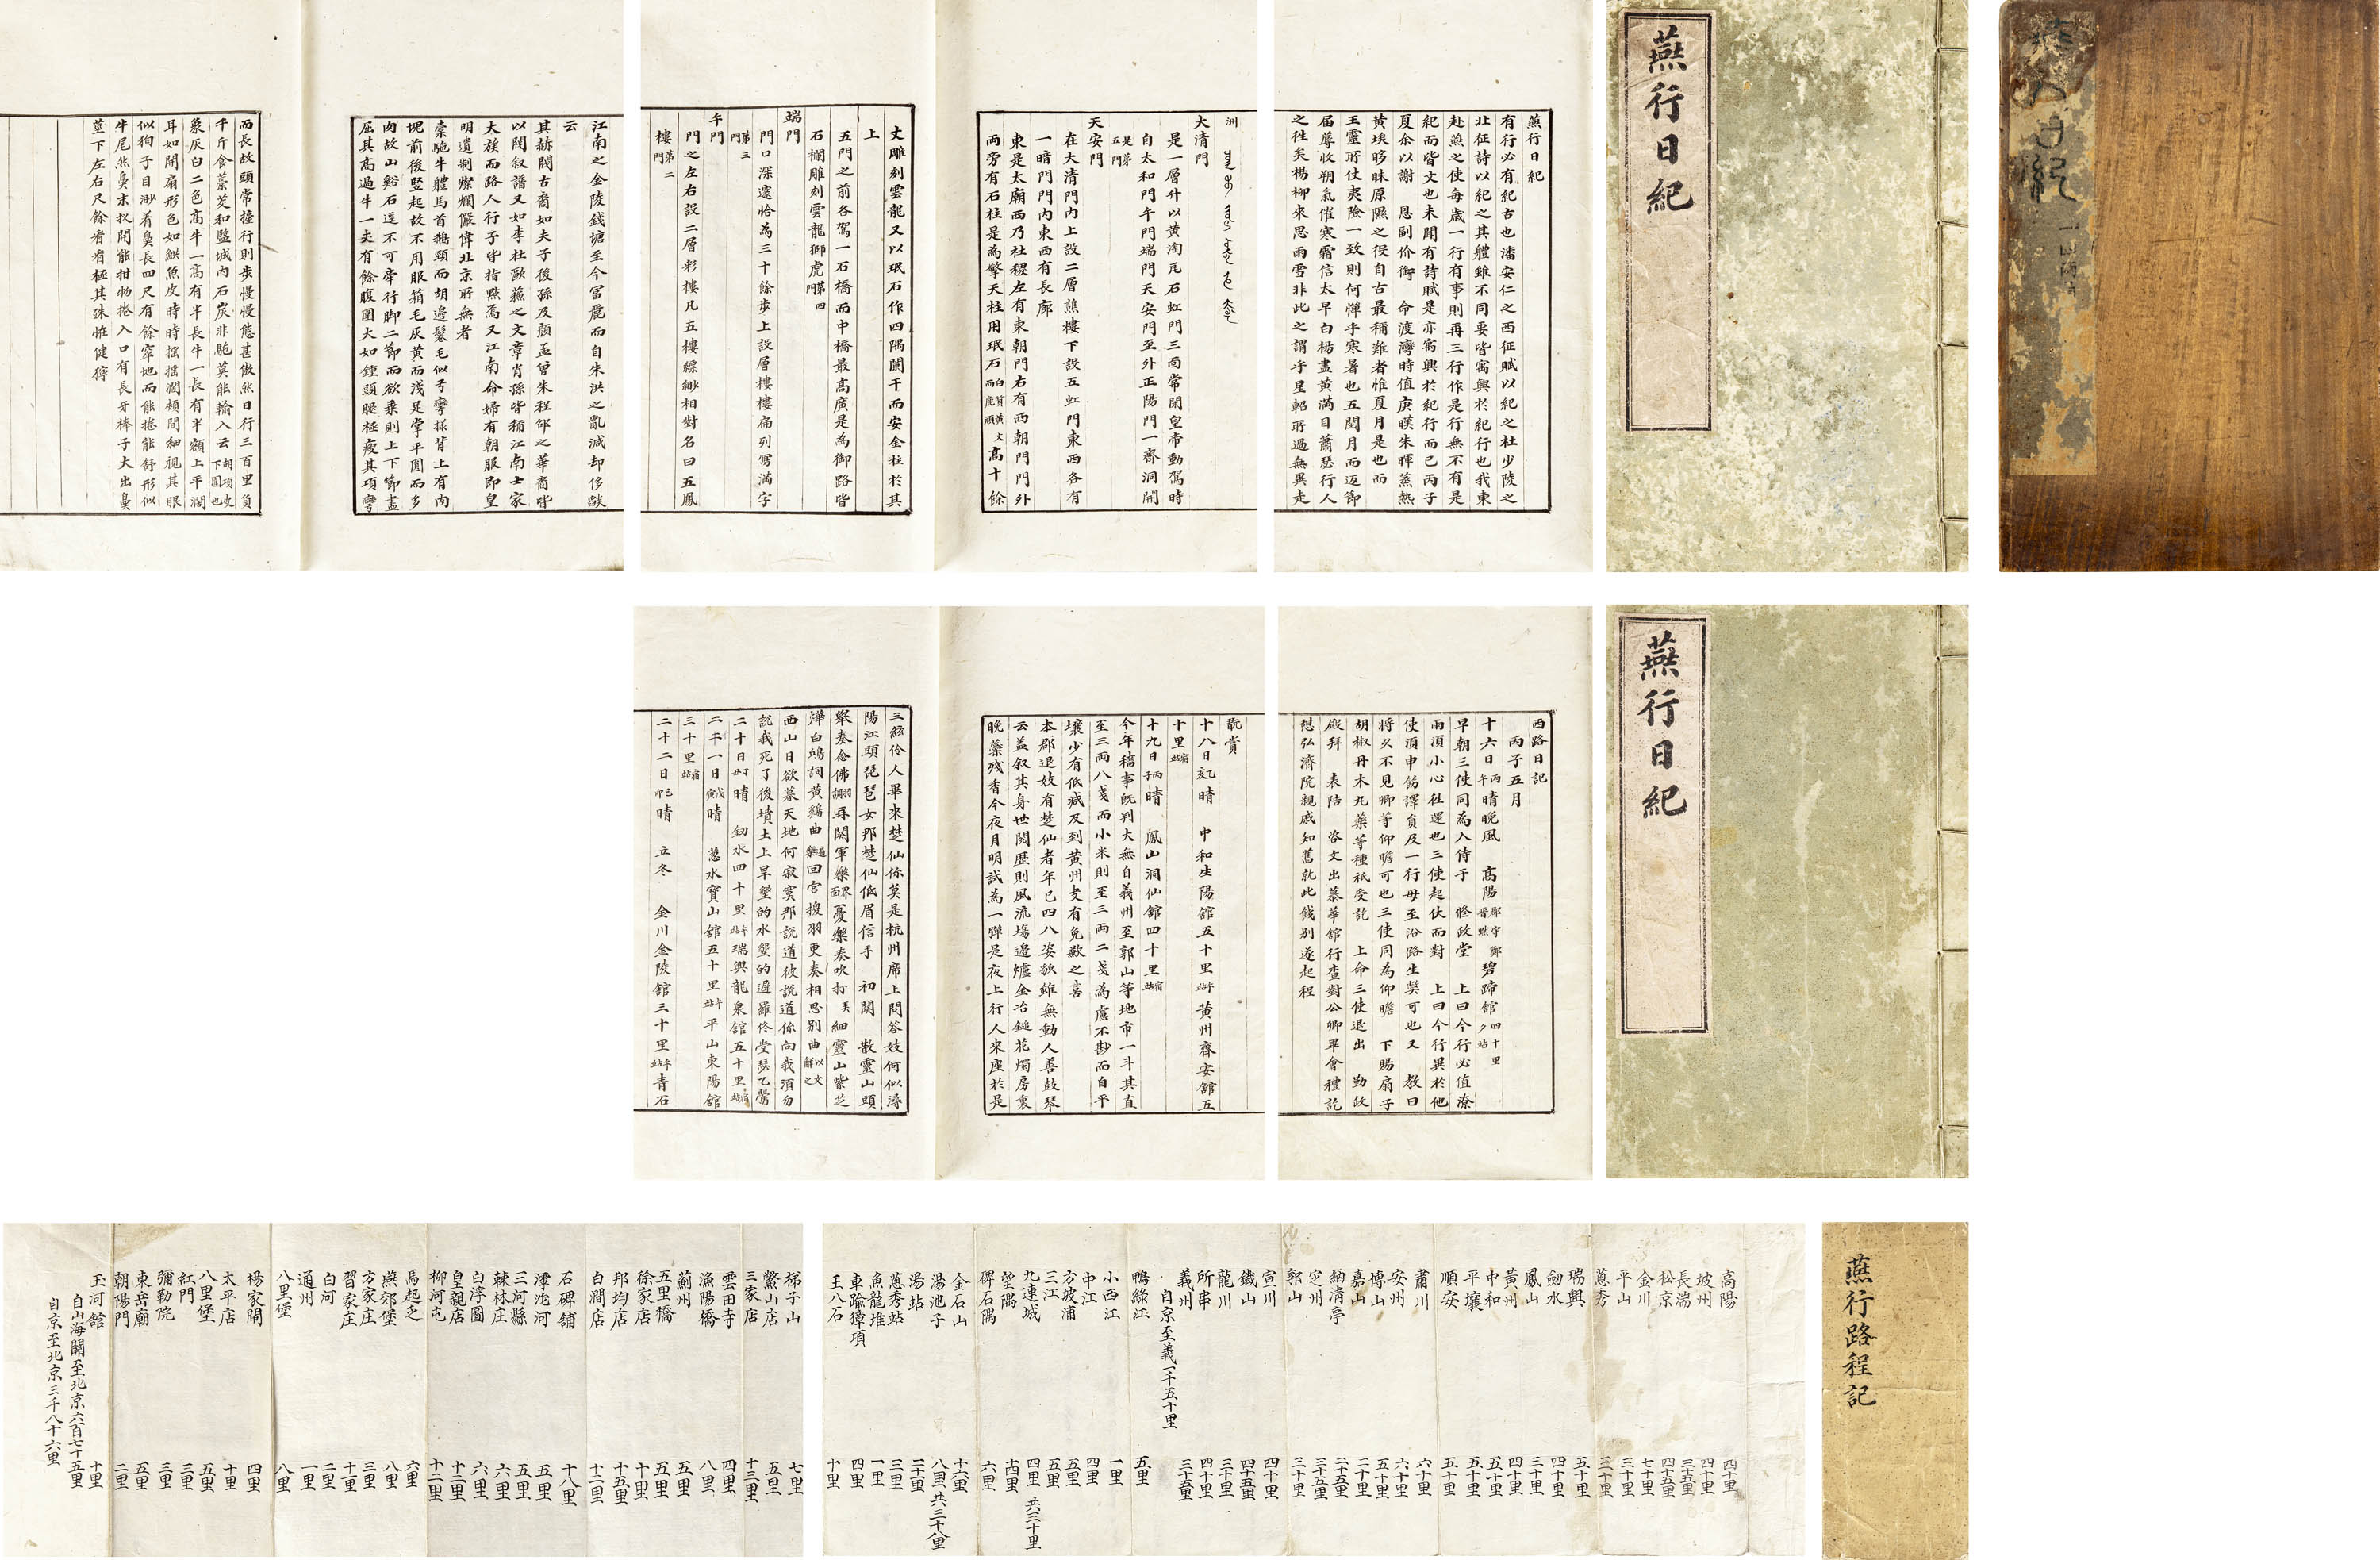 燕行日紀
燕行日紀
有行必有紀古也潘安仁之西征賦以紀之杜少陵之
北征詩以紀之其體雖不同要皆寓興於紀行也我東
赴燕之使每歲一行有事則再三行作是行無不有是
紀而皆文也未聞有詩賦是亦寓興於紀行而已丙子
夏余以謝 恩副价銜 命渡灣時值庚暵朱暉蒸熱
黃埃眵昧原隰之役自古最稱難者惟夏月是也而
王靈所仗夷險一致則何憚乎寒暑也五閱月而返節
屆蓐收朔氣催寒霜信太早白楊盡黃滿目蕭瑟行人
之往矣楊柳來思雨雪非此之謂乎星軺所過無異走
大清門
是一層升以黃淘瓦石虹門三面常閉皇帝動駕時
自太和門午門端門天安門至外正陽門一齊洞開
是第五門
天安門
在大清門內上設二層譙樓下設五虹門東西各有
一暗門門內東西有長廊
東是太廟西乃社稷左有東朝門右有西朝門門外
兩旁有石柱是為擎天柱用珉石白質黃文而鹿頭高十餘
丈雕刻雲龍又以珉石作四隅闌干而安金柱於其
上
五門之前各駕一石橋而中橋最高廣是為御路皆
石欄雕刻雲龍獅虎第四門
端門
門口深邃恰為三十餘步上設層樓樓扁列寫滿字
第三門
午門
門之左右設二層彩樓凡五樓縹緲相對名曰五鳳
樓第二門
江南之金陵錢塘至今富麗而自朱洪之亂減却侈燄
云
其赫閥古裔如夫子後孫及顏孟曾朱程邵之華裔皆
以閥叙譜又如李杜歐蘇之文章肖孫皆稱江南士家
大族而路人行子皆指點焉又江南命婦有朝服即皇
明遺制燦爛儼偉北京所無者
橐駞牛體馬首鵝頸而胡邊鬆毛似弓彎樣背上有肉
塊前後竪起故不用服箱毛灰黃而淺足掌平圓而多
肉故山谿石逕不可牽行脚二節而欲乘則上下節盡
屈其高過牛一丈有餘腹圍大如鍾頭腿極瘦其項彎
而長故頭常擡行則步慢慢態甚傲然日行三百里負
千斤食藁茭和鹽城內石炭非駞莫能輸入云胡項皮下圓也
象灰白二色高牛一高有半長牛一長有半額上平濶
耳如開扇形色如魟魚皮時時搖搖濶頰間細視其眼
似狗子目渺着鼻長四尺有餘窣地而能捲能舒形似
牛尾然鼻末杈開能拑物捲入口有長牙棒子大出鼻
莖下左右尺餘看看極其殊怪健獰
燕行日紀
西路日記
丙子五月
十六日丙午晴晚風 高陽郡守鄭晉默碧蹄館四十里夕站
早朝三使同為入侍于 修政堂 上曰今行必值潦
雨須小心往還也三使起伏而對 上曰今行異於他
使須申飭譯員及一行毋至沿路生獘可也又 敎曰
將久不見卿等仰瞻可也三使同為仰瞻 下賜扇子
胡椒丹木丸藥等種祗受訖 上命三使退出 勤政
殿拜 表陪 咨文出慕華館行查對公卿畢會禮訖
憩弘濟院親戚知舊就此餞別遂起程
翫賞
十八日乙亥晴 中和生陽館五十里午站黃州齊安館五
十里宿站
十九日丙子晴 鳳山洞仙館四十里宿站
今年穡事旣判大無自義州至郭山等地市一斗其直
至三兩八戔而小米則至三兩二戔為慮不尠而自平
壤少有低減及到黃州支有免歉之喜
本郡退妓有楚仙者年已四八姿貌雖無動人善鼓琴
云盖叙其身世閱歷則風流塲邊爐金冶鎚花燭房裏
晚藥殘香今夜月明試為一彈是夜上行人來座於是
三絃伶人畢來楚仙你莫是杭州席上問答妓何似潯
陽江頭琵琶女那楚仙低眉信手 初闋 散靈山頭
擧奏念佛再闋軍樂憂樂奏吹打 細靈山紫芝
燁白鷗詞黃鷄曲回宮換羽更奏相思別曲以文解之
西山日欲暮天地何寂寞那說道彼說道你向我須勿
說我死了後墳土上旱壟的水壟的邐羅佟堂瑟乙鷪
二十日丁丑晴 劒水四十里午站瑞興龍泉館五十里宿站
二十一日戊寅晴 葱水寶山館五十里午站平山東陽館
三十里宿站
二十二日己卯晴 立冬 金川金陵館三十里午站青石
燕行路程記
高陽 四十里
坡州 四十里
長湍 三十五里
松京 四十五里
金川 七十里
平山 三十里
葱秀 三十里
瑞興 五十里
劒水 四十里
鳳山 三十里
黃州 四十里
中和 五十里
平壤 五十里
順安 五十里
肅川 六十里
安州 六十里
博山 五十里
嘉山 二十里
納清亭 二十五里
定州 三十五里
郭山 三十里
宣川 四十里
鐵山 四十五里
龍川 三十里
所串 四十里
義州 三十五里
自京至義一千五十里
鴨綠江 五里
小西江 一里
中江 四里
方坡浦 五里
三江 五里
九連城 四里 共三十里
望隅 十四里
碑石隅 六里
金石山 十六里
湯池子 八里 共三十八里
湯站 二十二里
葱秀站 三里
魚龍堆 一里
車踰獐項 四里
王八石 十里
梯子山 七里
鱉山店 五里
三家店 十三里
雲田寺 四里
漁陽橋 八里
薊州 五里
五里橋 五里
徐家店 十里
邦均店 十五里
白澗店 十二里
石碑舖 十八里
滹沱河 五里
三河縣 五里
棘林庄 六里
白浮圖 六里
皇親店 十二里
柳河屯 十二里
馬起乏 六里
燕郊堡 八里
方家庄 三里
習家庄 十二里
白河 二里
通州 一里
八里堡 八里
楊家閘 四里
太平店 十里
八里堡 五里
紅門 三里
彌勒院 三里
東岳廟 五里
朝陽門 二里
玉河館 十里
自山海關至北京六百七十五里
自京至北京三千八十六里